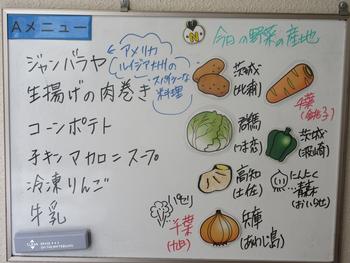 Aメニュー
ジャンバラヤ
アメリカ
ルイジアナ州の
スパイシーな
料理
生揚げの肉巻き
コーンポテト
チキンマカロニスープ
冷凍りんご
牛乳
N
今日の野菜の産地
茨城
千葉
群馬
茨城
高知
(土佐)
にんにく
青森
(おいらせ)
パセリ
千葉
(旭)
兵庫
(あわじ島)